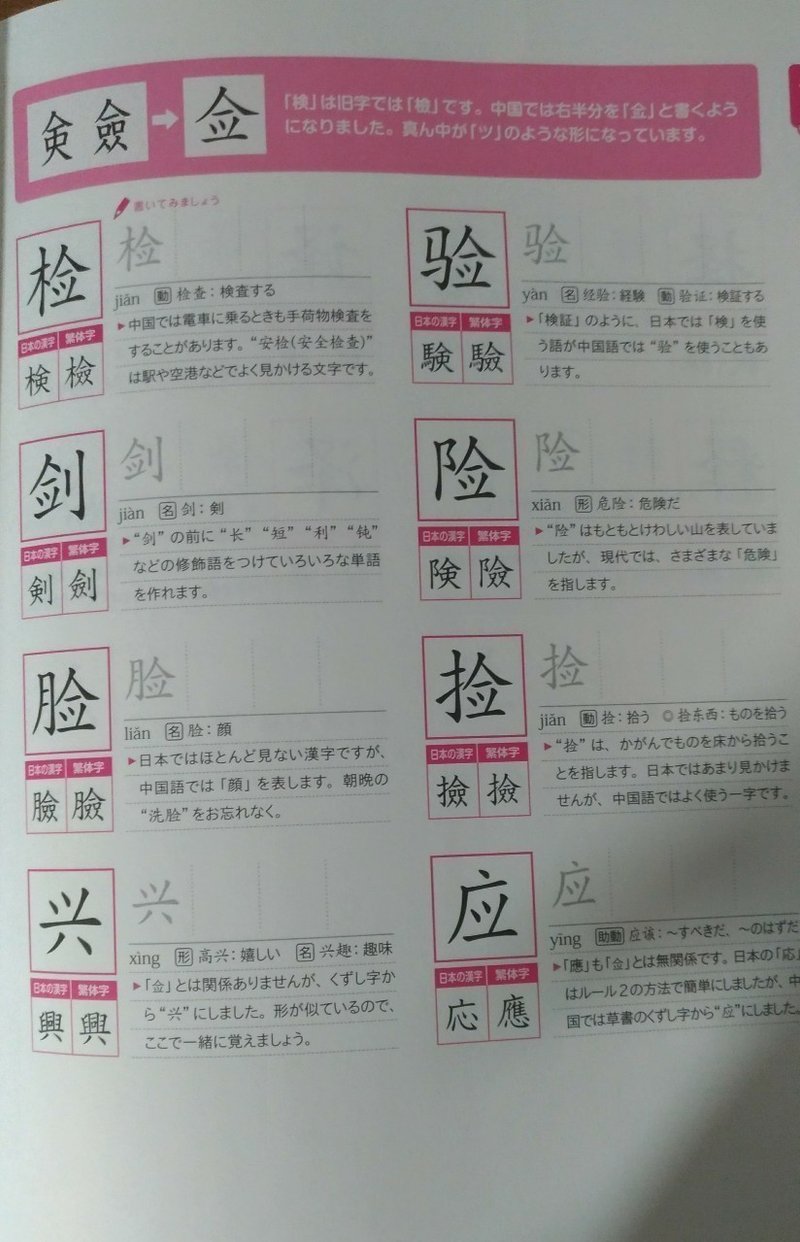 㑒 僉 → 佥
「検」は旧字では「檢」です。中国では右半分を「佥」と書くよう
になりました。真ん中が「ツ」のような形になっています。
書いてみましょう
检 检
jiǎn 動 检查：検査する
▶中国では電車に乗るときも手荷物検査を
することがあります。“安检(安全检查)”
は駅や空港などでよく見かける文字です。
日本の漢字 繁体字
検 檢
剑 剑
jiàn 名 剑：剣
▶“剑”の前に“长”“短”“利”“钝”
などの修飾語をつけていろいろな単語
を作れます。
日本の漢字 繁体字
剣 劍
脸 脸
liǎn 名 脸：顔
▶日本ではほとんど見ない漢字ですが、
中国語では「顔」を表します。朝晩の
“洗脸”をお忘れなく。
日本の漢字 繁体字
臉 臉
兴 兴
xìng 形 高兴：嬉しい 名 兴趣：趣味
▶「佥」とは関係ありませんが、くずし字か
ら“兴”にしました。形が似ているので、
ここで一緒に覚えましょう。
日本の漢字 繁体字
興 興
验 验
yàn 名 经验：経験 動 验证：検証する
▶「検証」のように、日本では「検」を使
う語が中国語では“验”を使うこともあ
ります。
日本の漢字 繁体字
験 驗
险 险
xiǎn 形 危险：危険だ
▶“险”はもともとけわしい山を表していま
したが、現代では、さまざまな「危険」
を指します。
日本の漢字 繁体字
険 險
捡 捡
jiǎn 動 捡：拾う ◎捡东西：ものを拾う
▶“捡”は、かがんでものを床から拾うこ
とを指します。日本ではあまり見かけま
せんが、中国語ではよく使う一字です。
日本の漢字 繁体字
撿 撿
应 应
yīng 助動 应该：〜すべきだ、〜のはずだ
▶「應」も「佥」とは無関係です。日本の「応」
はルール２の方法で簡単にしましたが、中
国では草書のくずし字から“应”にしました。
日本の漢字 繁体字
応 應